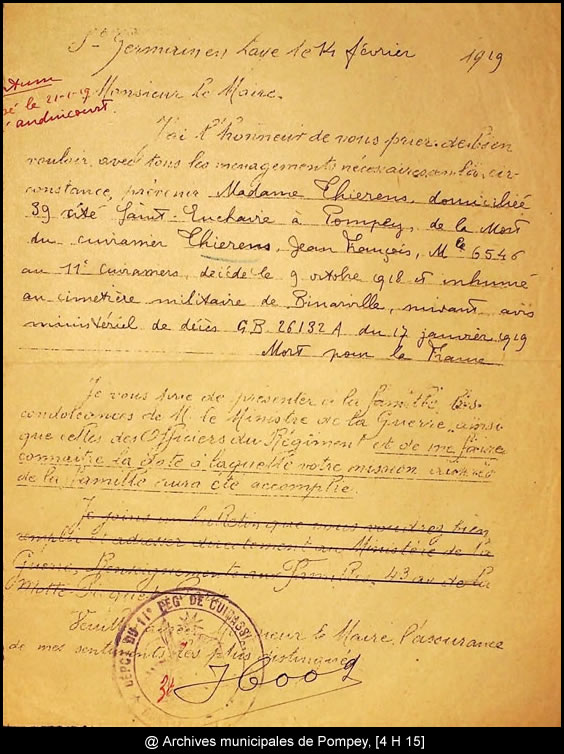 St Germain en Laye le 14 février 1919
é le 21-1-19
andincourt
Monsieur Le Maire.
J'ai l'honneur de vous prier de bien
vouloir, avec tous les menagements nécessaires en la cir-
constance, prévenir Madame Thierens, domiciliée
39 cité Saint-Enchaire à Pompey, de la Mort
du cuirassier Thierens, Jean François, Mle 6546
au 11e cuirassiers, décédé le 9 octobre 1918 et inhumé
au cimetière militaire de Binarville, suivant avis
ministériel de décès G.B. 26132 A du 17 janvier 1919
Mort pour la France
Je vous serai de présenter à la famille les
condoléances de M. le Ministre de la Guerre ainsi
que celles des Officiers du Régiment et de me faire
connaître la date à laquelle votre mission auprès
de la famille aura été accomplie.
Je joins un bulletin que vous voudrez bien
remplir et adresser directement au Ministère de la
Guerre Renseignements aux Familles 43 av de la
Motte Picquet Paris
Veuillez Monsieur le Maire, l'assurance
de mes sentiments les plus distingués
DÉPÔT DU 11e RÉGt DE CUIRASSI
@ Archives municipales de Pompey, [4 H 15]